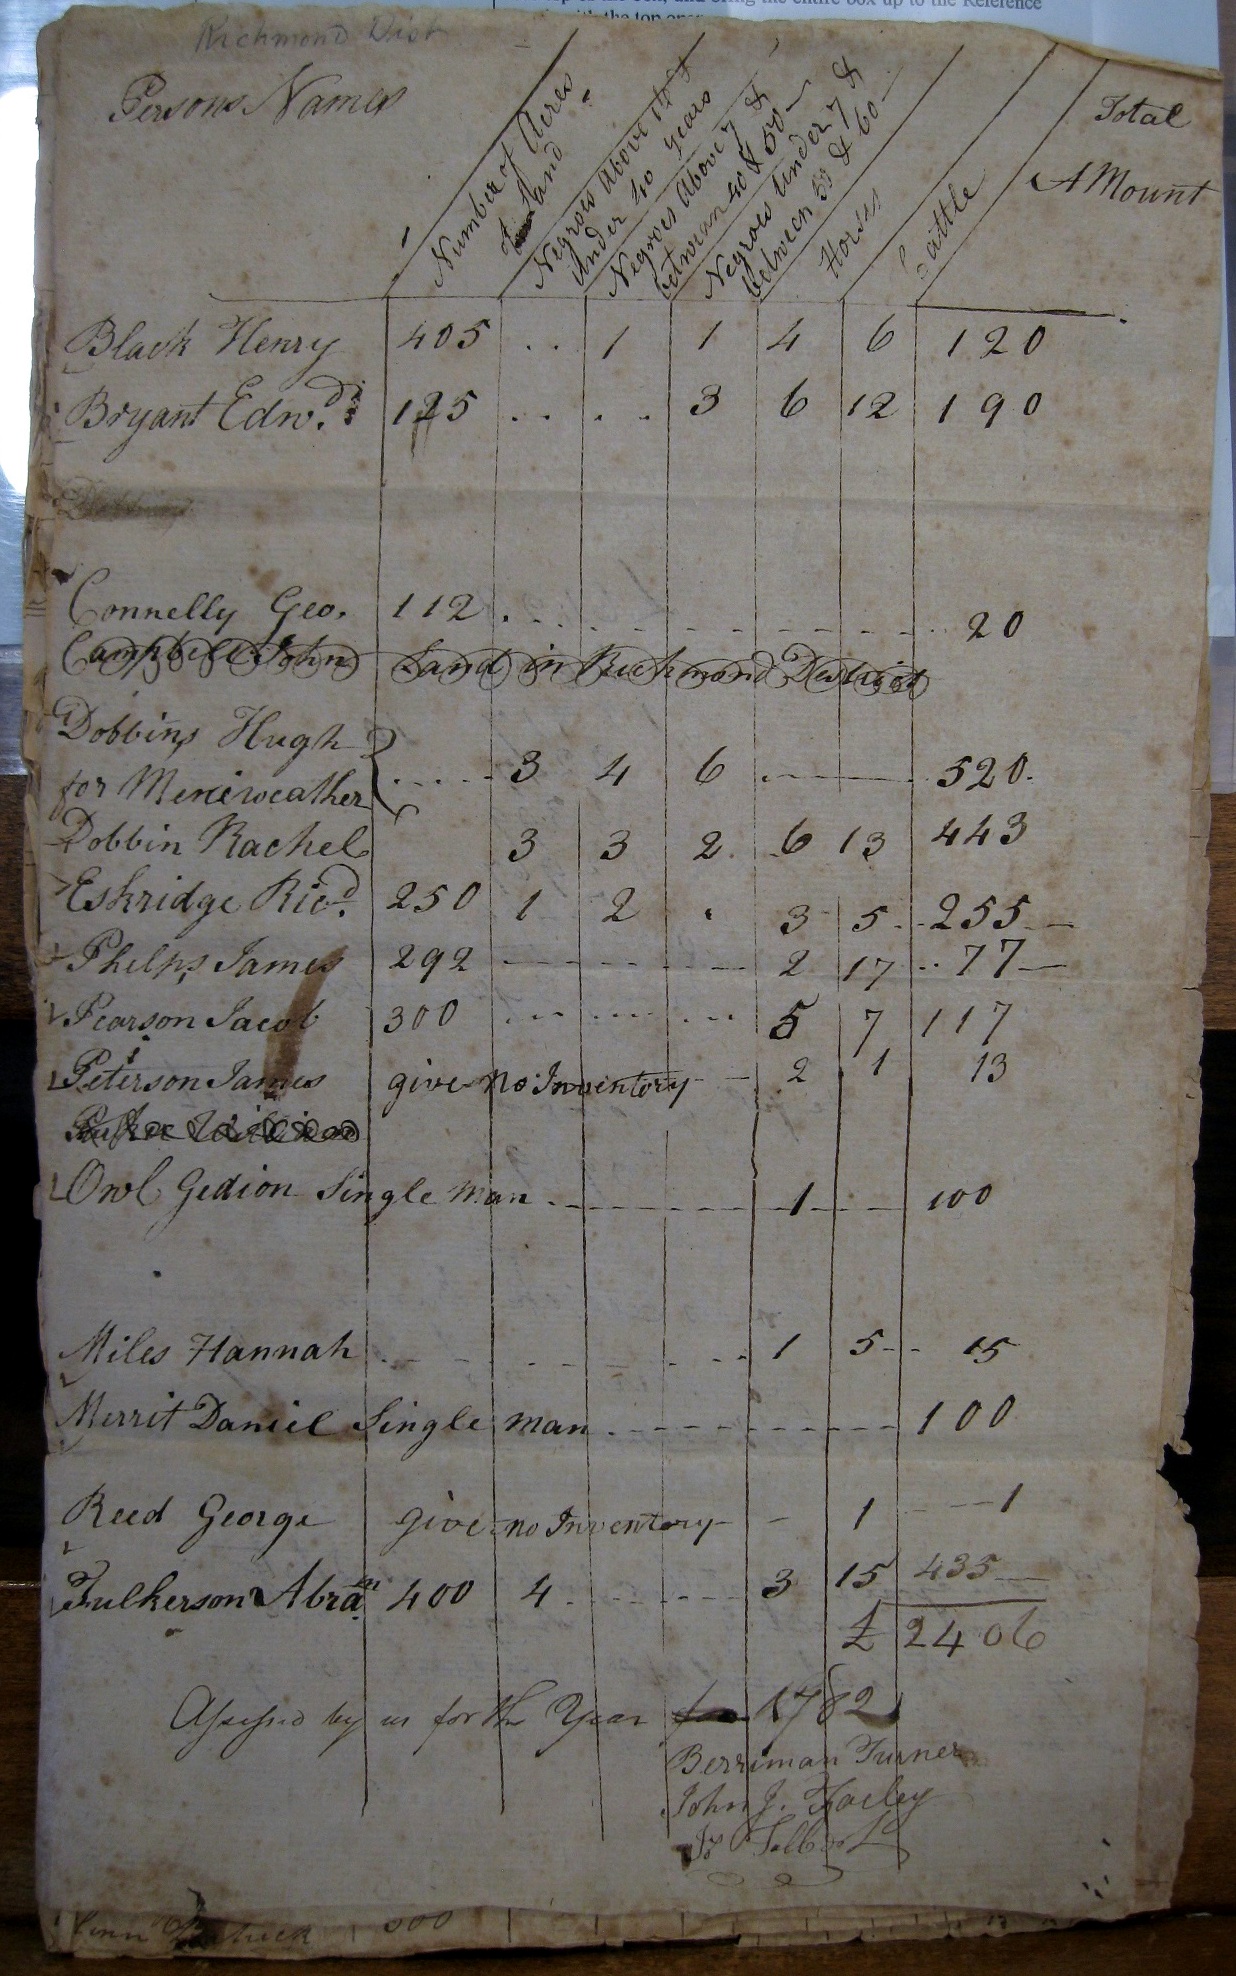 and bring the entire box up to the Reference
the top
Richmond Dist
Persons Names
Number of Acres of Land
Negroes Above & Under 40 years
Negroes Above 7 & between 40 & 50
Negroes Under 7 & between 50 & 60
Horses
Cattle
Total AMount
Black Henry 405 . . 1 1 4 6 120
Bryant Edwd. 125 . . . . 3 6 12 190
Connelly Geo. 112 . . . . 20
Campbell John Land in Richmond District
Dobbins Hugh
for Merieweather . . . . 3 4 6 . 520.
Dobbin Rachel 3 3 2. 6 13 443
Eskridge Ricd. 250 1 2 . 3 5 255
Phelps James 292 2 17 77
Pearson Jacob 300 5 7 117
Peterson James give no Inventory 2 1 13
Owl Gedion Single man 1 100
Miles Hannah 1 5 15
Merrit Daniel Single man 100
Reed George give no Inventory 1 1
Fulkerson Abram 400 4 3 15 435
£ 2406
Assessed by us for the Year 1782
Berriman Turner
John J.